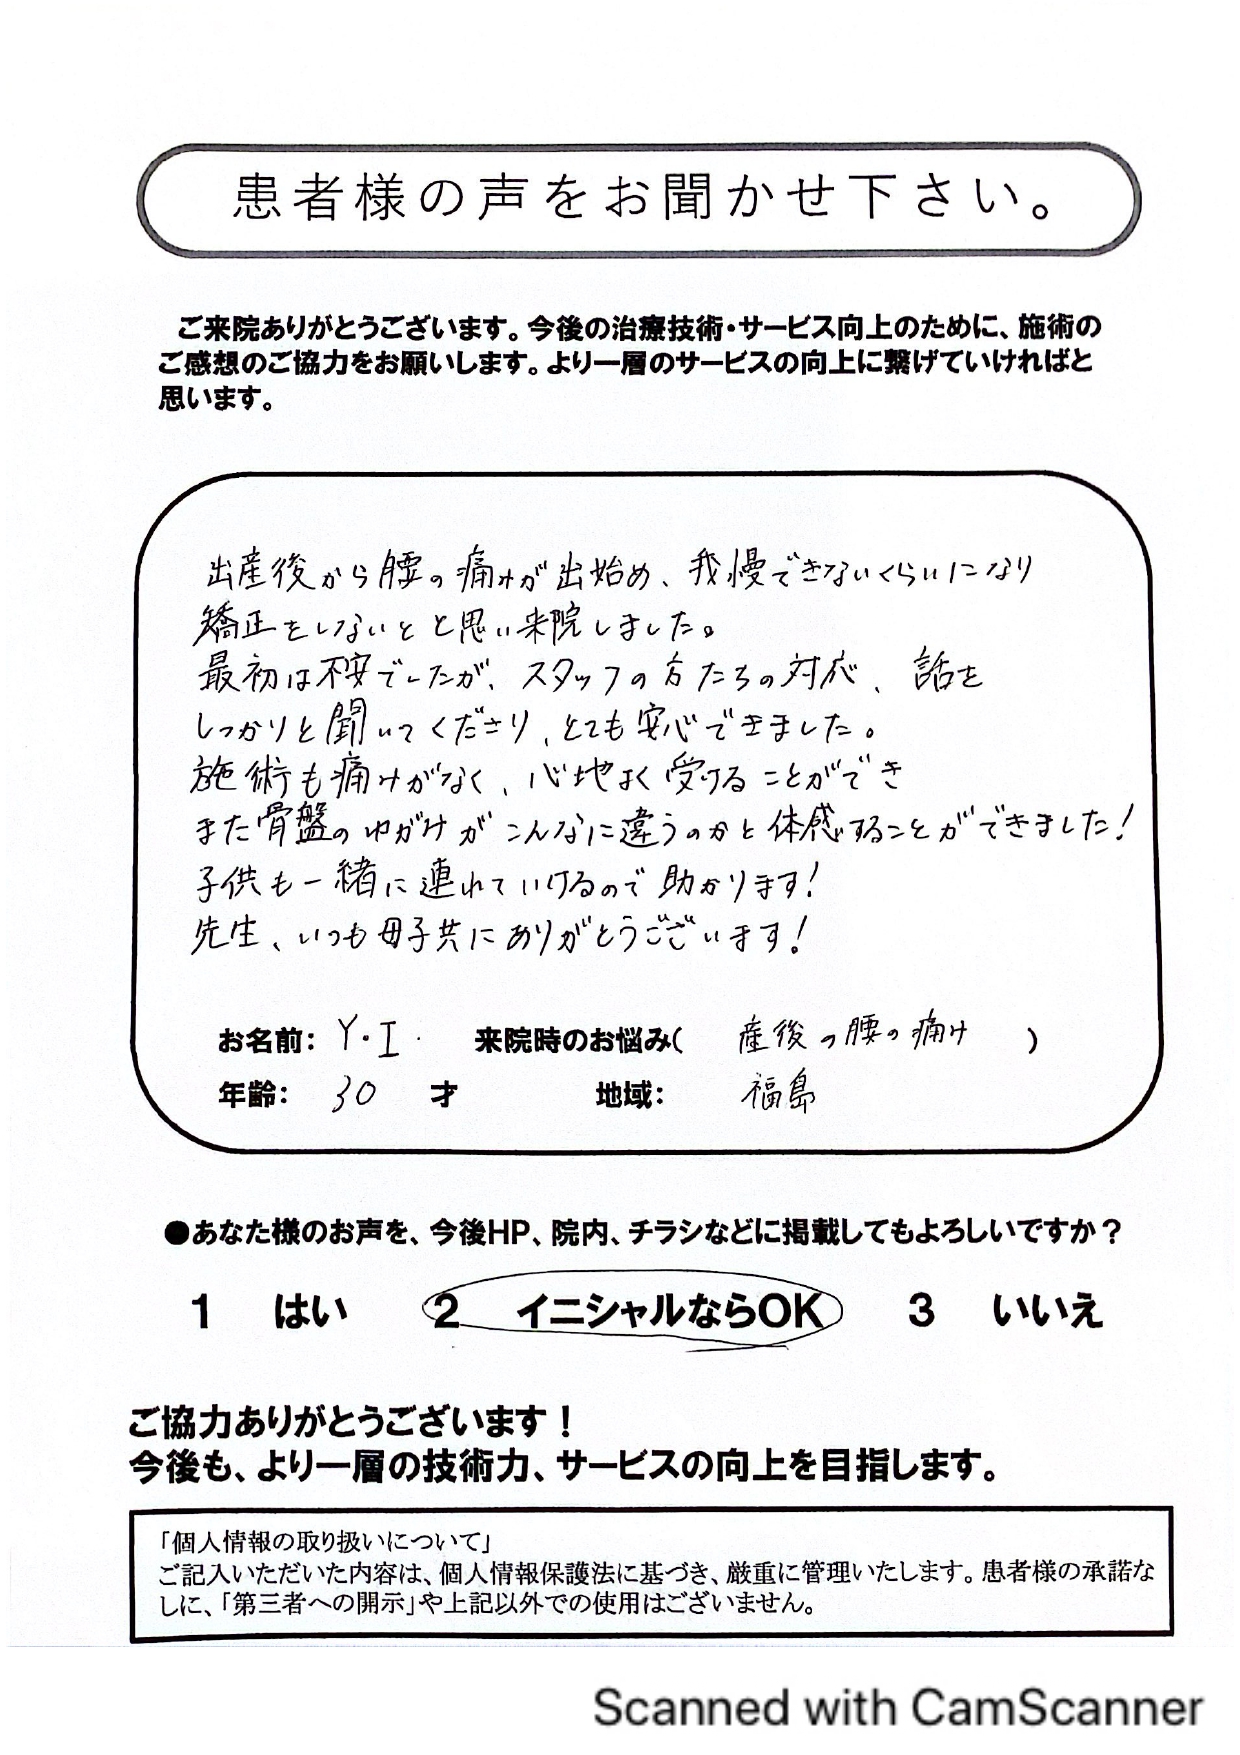 患者様の声をお聞かせ下さい。
ご来院ありがとうございます。今後の治療技術・サービス向上のために、施術の
ご感想のご協力をお願いします。より一層のサービスの向上に繋げていければと
思います。
出産後から腰の痛みが出始め、我慢できないくらいになり
矯正をしないとと思い来院しました。
最初は不安でしたが、スタッフの方たちの対応、話を
しっかりと聞いてくださり、とても安心できました。
施術も痛みがなく、心地よく受けることができ
また骨盤のゆがみがこんなに違うのかと体感することができました!
子供も一緒に連れていけるので助かります!
先生、いつも母子共にありがとうございます!
お名前: Y・I 来院時のお悩み( 産後の腰の痛み )
年齢: 30 才 地域: 福島
●あなた様のお声を、今後HP、院内、チラシなどに掲載してもよろしいですか?
1 はい 2 イニシャルならOK 3 いいえ
ご協力ありがとうございます!
今後も、より一層の技術力、サービスの向上を目指します。
「個人情報の取り扱いについて」
ご記入いただいた内容は、個人情報保護法に基づき、厳重に管理いたします。患者様の承諾な
しに、「第三者への開示」や上記以外での使用はございません。
Scanned with CamScanner